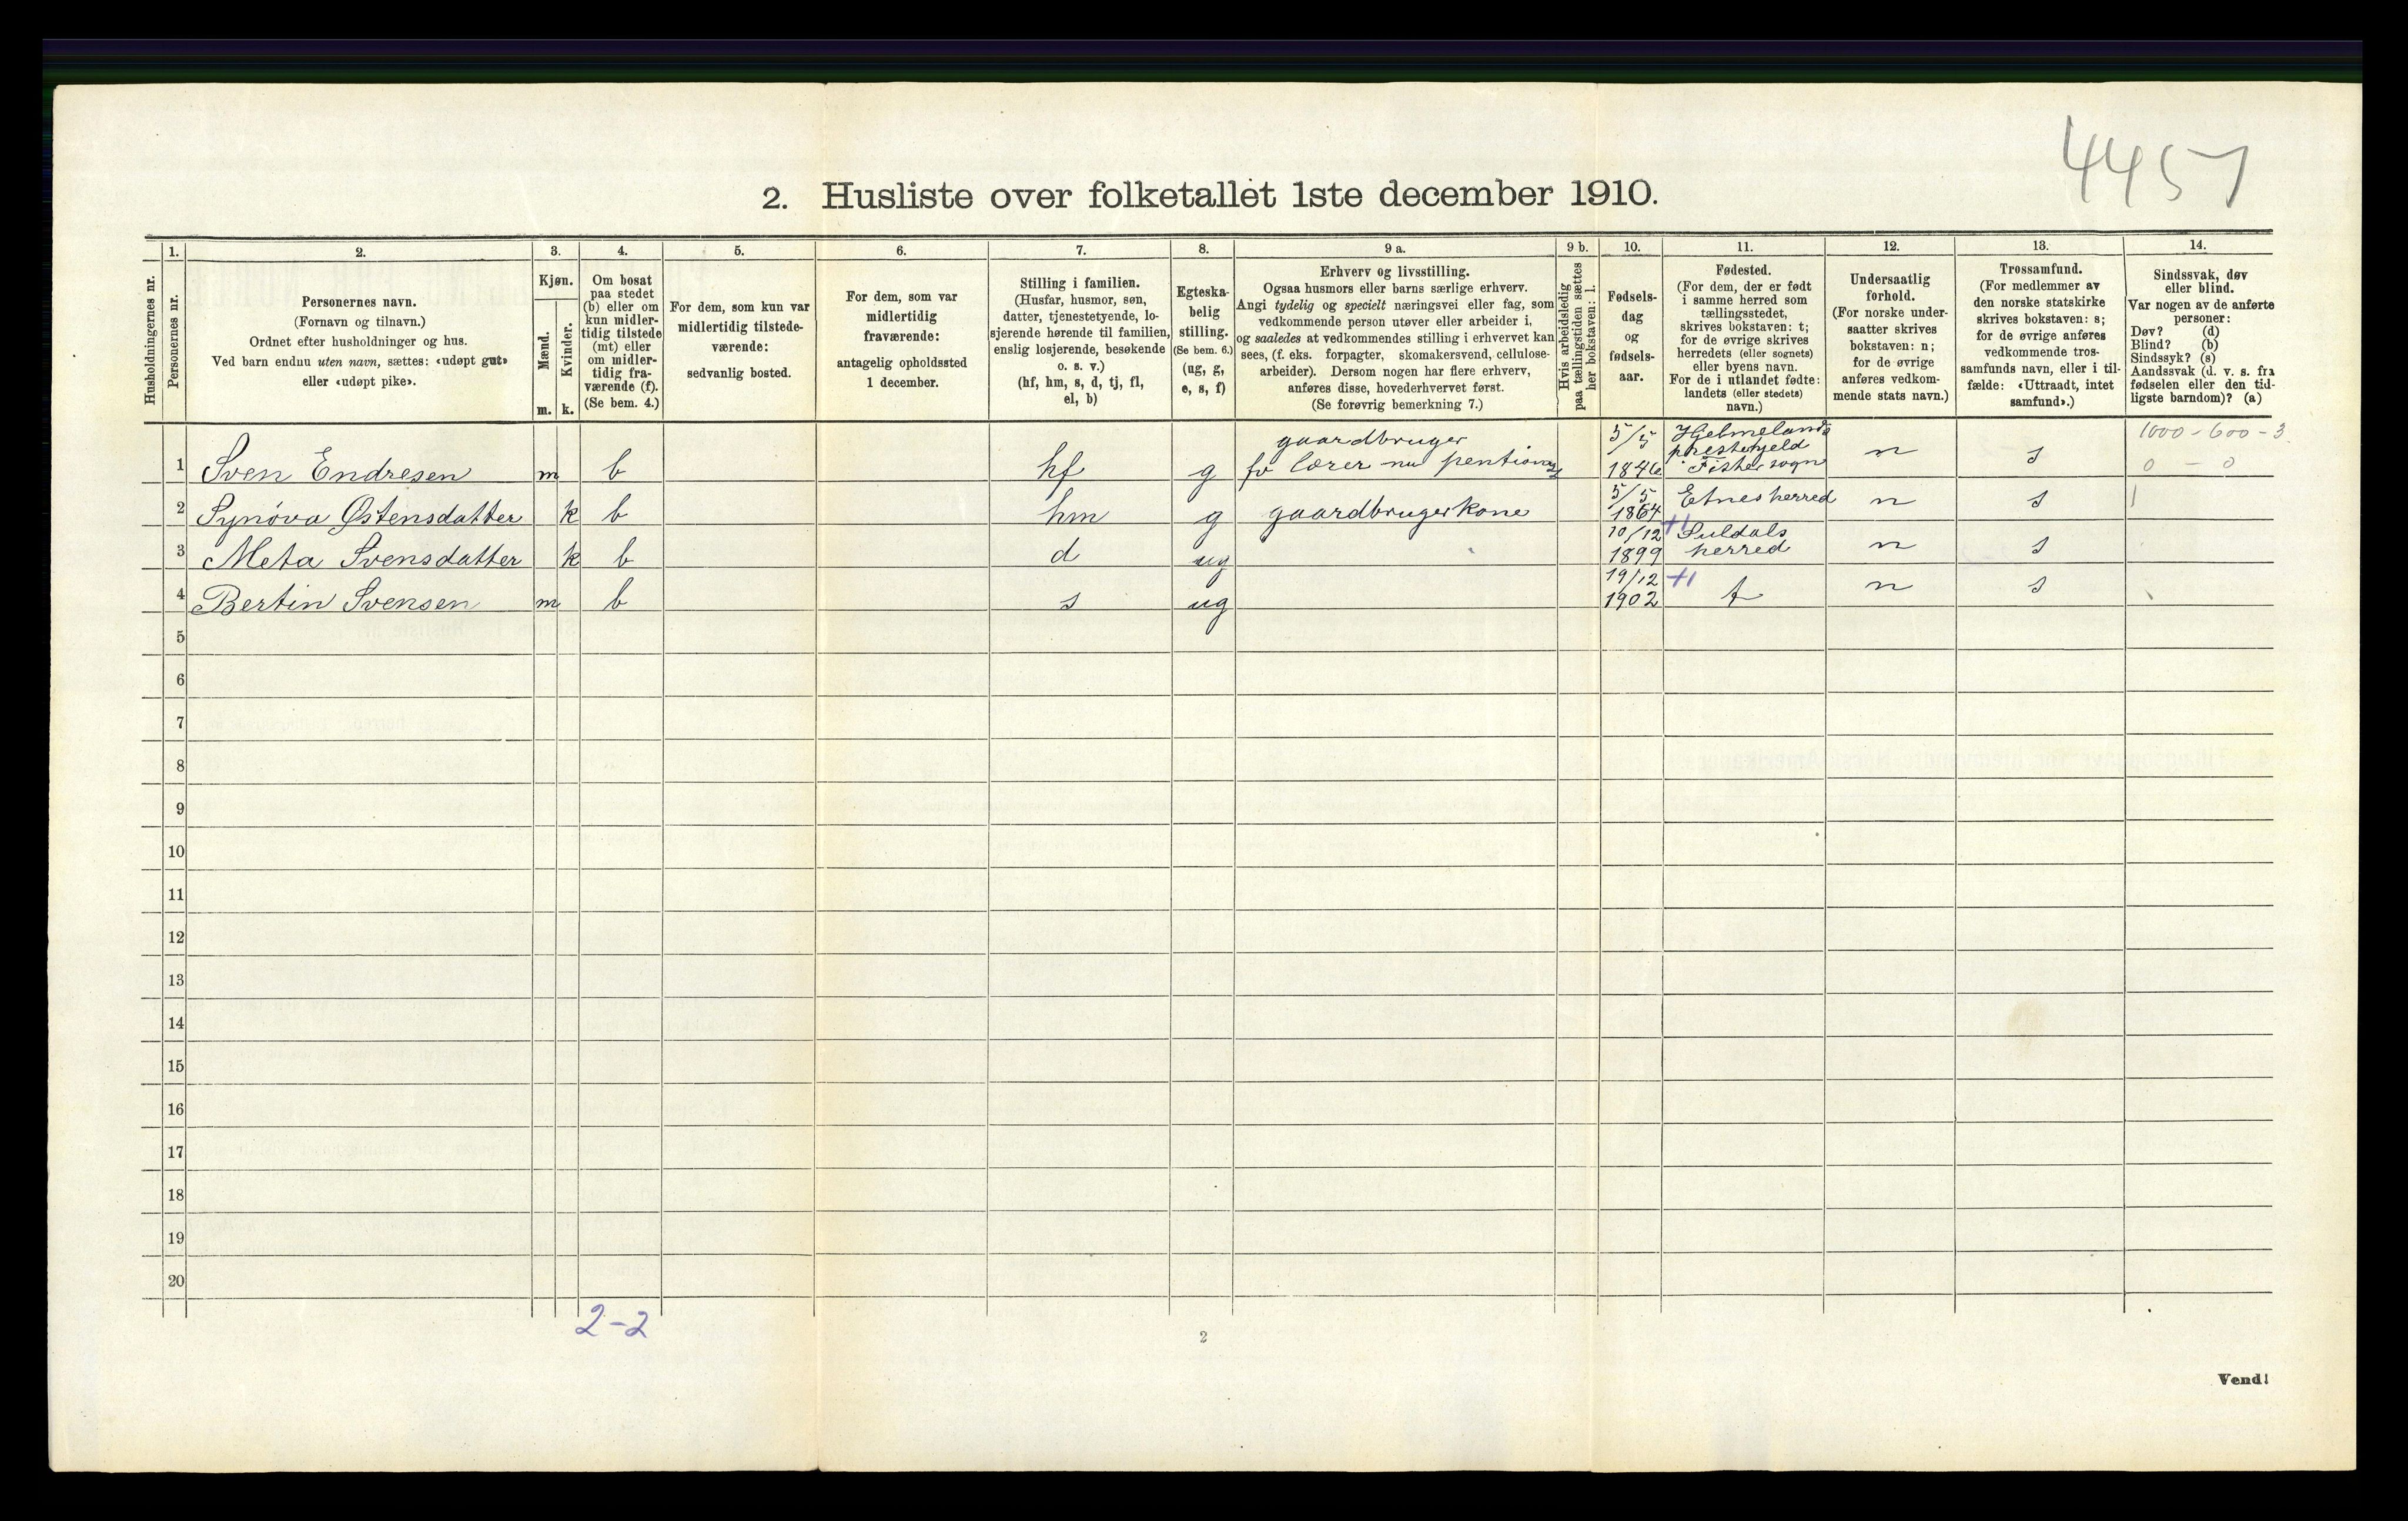 4457
2. Husliste over folketallet 1ste december 1910.
Husholdningernes nr.
1.
Personernes nr.
2.
Personernes navn.
(Fornavn og tilnavn.)
Ordnet efter husholdninger og hus.
Ved barn endnu uten navn, sættes: «udøpt gut»
eller «udøpt pike».
3.
Kjøn.
Mænd.
Kvinder.
m. k.
4.
Om bosat
paa stedet
(b) eller om
kun midler-
tidig tilstede
(mt) eller
om midler-
tidig fra-
værende (f).
(Se bem. 4.)
5.
For dem, som kun var
midlertidig tilstede-
værende:
sedvanlig bosted.
6.
For dem, som var
midlertidig
fraværende:
antagelig opholdssted
1 december.
7.
Stilling i familien.
(Husfar, husmor, søn,
datter, tjenestetyende, lo-
sjerende hørende til familien,
enslig losjerende, besøkende
o. s. v.)
(hf, hm, s, d, tj, fl,
el, b)
8.
Egteska-
belig
stilling.
(Se bem. 6.)
(ug, g,
e, s, f)
9 a.
Erhverv og livsstilling.
Ogsaa husmors eller barns særlige erhverv.
Angi tydelig og specielt næringsvei eller fag, som
vedkommende person utøver eller arbeider i,
og saaledes at vedkommendes stilling i erhvervet kan
sees, (f. eks. forpagter, skomakersvend, cellulose-
arbeider). Dersom nogen har flere erhverv,
anføres disse, hovederhvervet først.
(Se forøvrig bemerkning 7.)
9 b.
Hvis arbeidsledig
paa tællingstiden sættes
her bokstaven: l.
10.
Fødsels-
dag
og
fødsels-
aar.
11.
Fødested.
(For dem, der er født
i samme herred som
tællingsstedet,
skrives bokstaven: t;
for de øvrige skrives
herredets (eller sognets)
eller byens navn.
For de i utlandet fødte:
landets (eller stedets)
navn.)
12.
Undersaatlig
forhold.
(For norske under-
saatter skrives
bokstaven: n;
for de øvrige
anføres vedkom-
mende stats navn.)
13.
Trossamfund.
(For medlemmer av
den norske statskirke
skrives bokstaven: s;
for de øvrige anføres
vedkommende tros-
samfunds navn, eller i til-
fælde: «Uttraadt, intet
samfund».)
14.
Sindssvak, døv
eller blind.
Var nogen av de anførte
personer:
Døv? (d)
Blind? (b)
Sindssyk? (s)
Aandssvak (d. v. s. fra
fødselen eller den tid-
ligste barndom)? (a)
gaardbruger 5/5 Hjelmelands 1000-600-3
prestegjeld
1 Sven Endresen m b hf g fv lærer nu 1846 Fister sogn n s 0 - 0
2 Synöva Østensdatter k b hm g gaardbrugerkone 5/5 1864 Etnes herred n s 1
3 Meta Svensdatter k b d ug 10/12 1899 +1 Suldals herred n s
4 Bertin Svensen m b s ug 19/12 1902 +1 t n s
5
6
7
8
9
10
11
12
13
14
15
16
17
18
19
20
2-2
2
Vend!